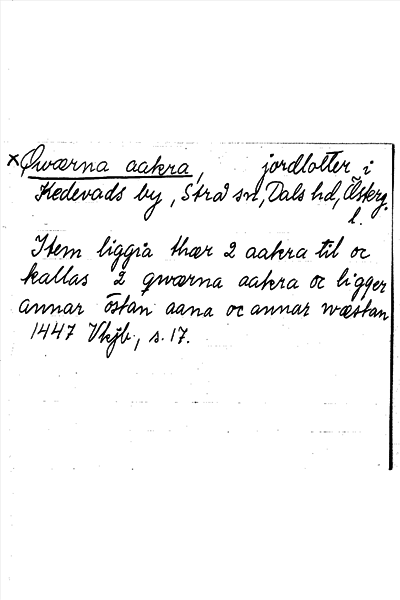 ×Qwærna aakra, jordlotter i
Kedevads by, Strå sn, Dals hd, Österg.
l.
Item liggia thær 2 aakra til oc
kallas 2 qwærna aakra oc ligger
annar östan aana oc annar wæstan
1447 Vkjb, s. 17.